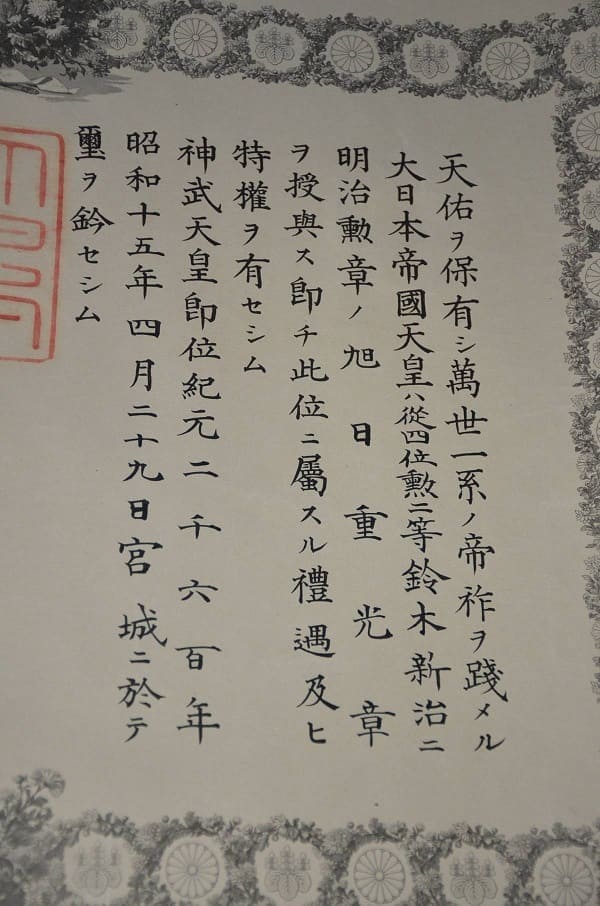 天佑ヲ保有シ萬世一系ノ帝祚ヲ踐メル
大日本帝國天皇ハ從四位勲二等鈴木新治ニ
明治勲章ノ旭日重光章
ヲ授與ス卽チ此位ニ屬スル禮遇及ヒ
特權ヲ有セシム
神武天皇卽位紀元二千六百年
昭和十五年四月二十九日宮城ニ於テ
璽ヲ鈐セシム